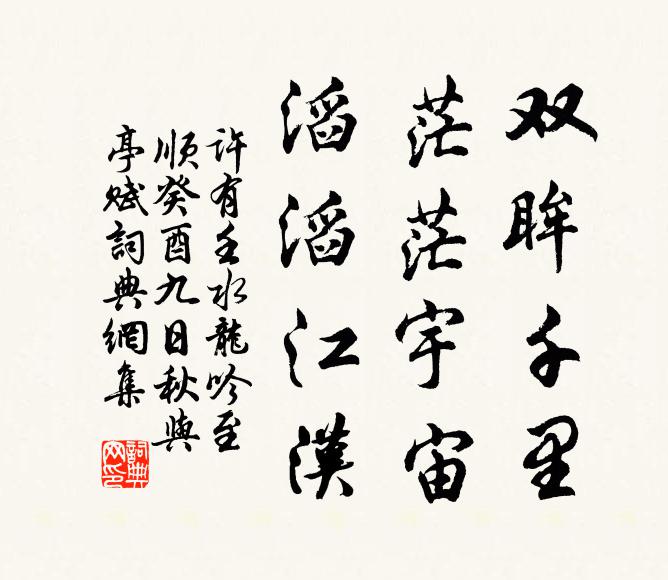 双眸千里
茫茫宇宙
滔滔江漢
許有壬水龍吟至
順癸酉九日秋興
亭賦詞典網集
詞典
网印